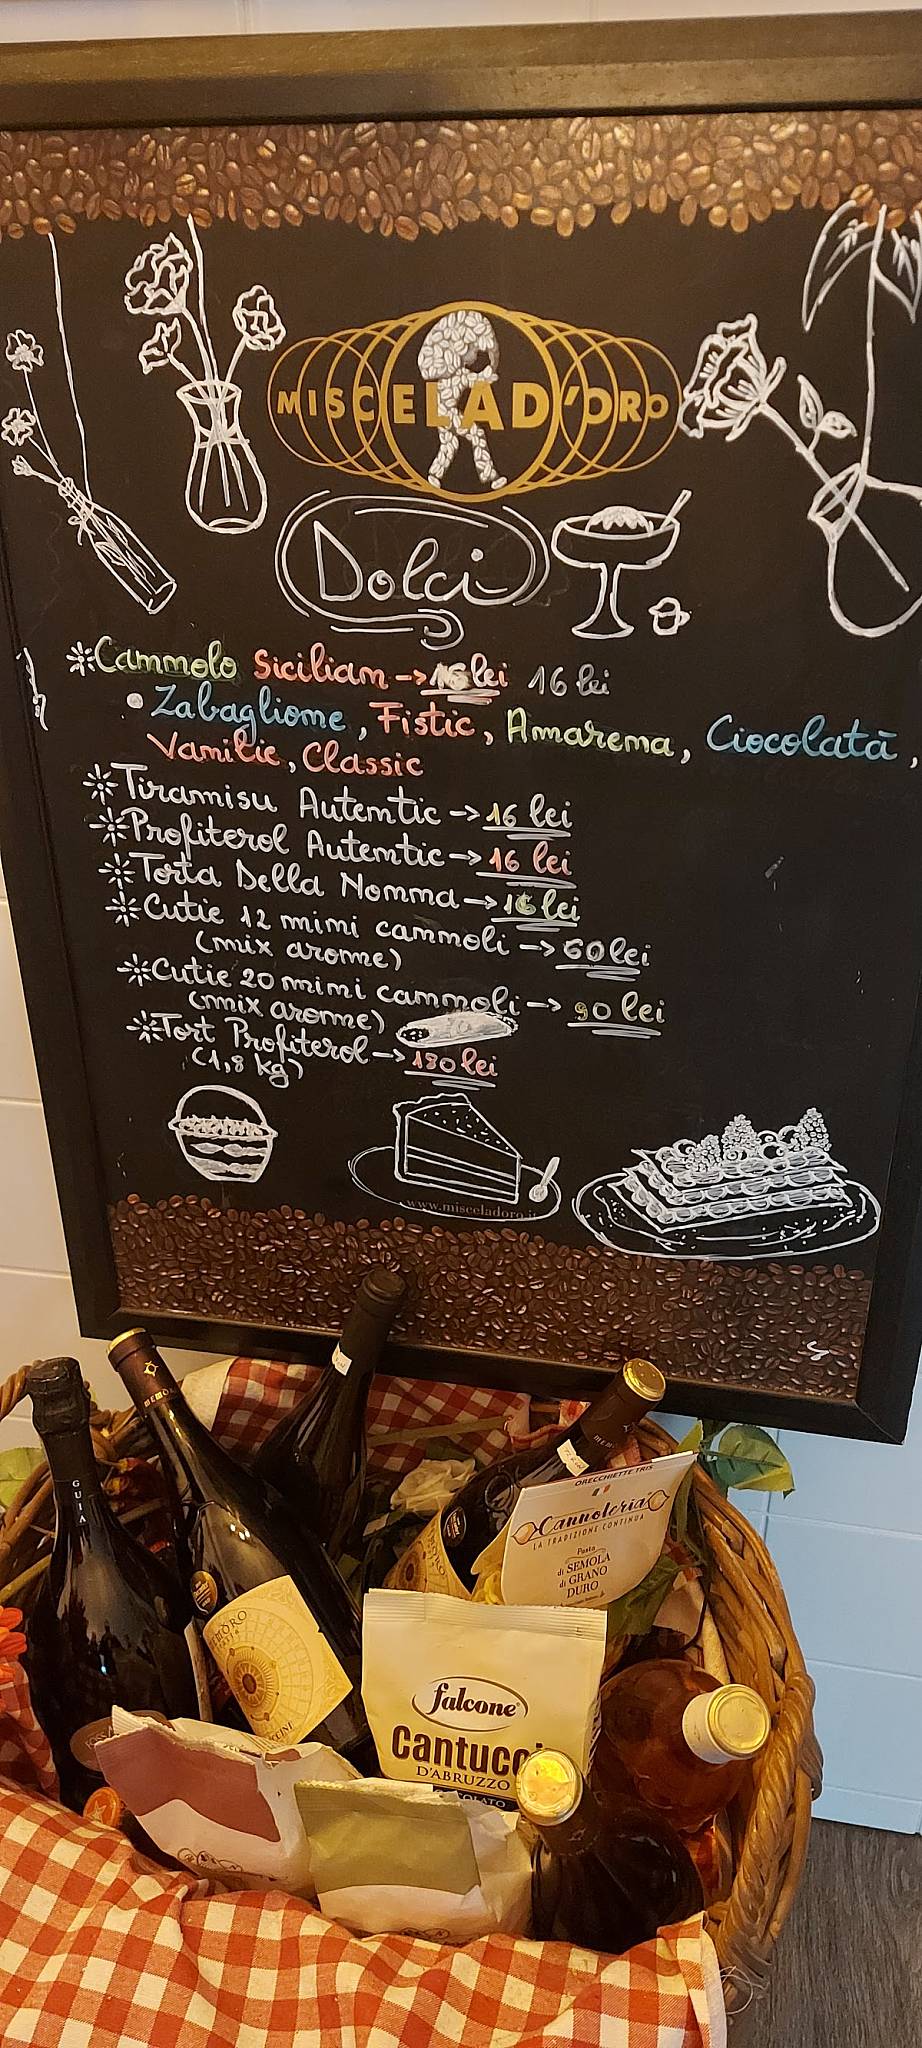 MISCELA D'ORO
Dolci
Cannolo Sicilian → 16 lei 16 lei
Zabaglione, Fistic, Amarena, Ciocolată,
Vanilie, Classic
Tiramisu Autentic → 16 lei
Profiterol Autentic → 16 lei
Torta Della Nonna → 16 lei
Cutie 12 mini cannoli → 60 lei
(mix arome)
Cutie 20 mini cannoli → 90 lei
(mix arome)
Tort Profiterol → 180 lei
(1,8 kg)
www.misceladoro.it
GUIA
ORECCHIETTE TRIS
Cannoleria
LA TRADIZIONE CONTINUA
Pasta
di SEMOLA
di GRANO
DURO
falcone
Cantucci
D'ABRUZZO